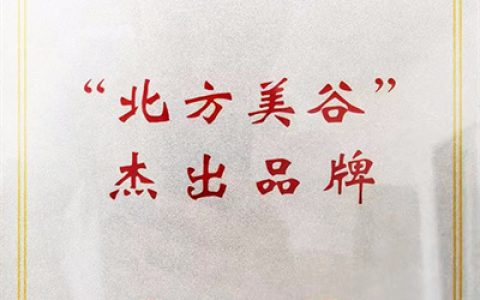 “北方美谷”
杰出品牌